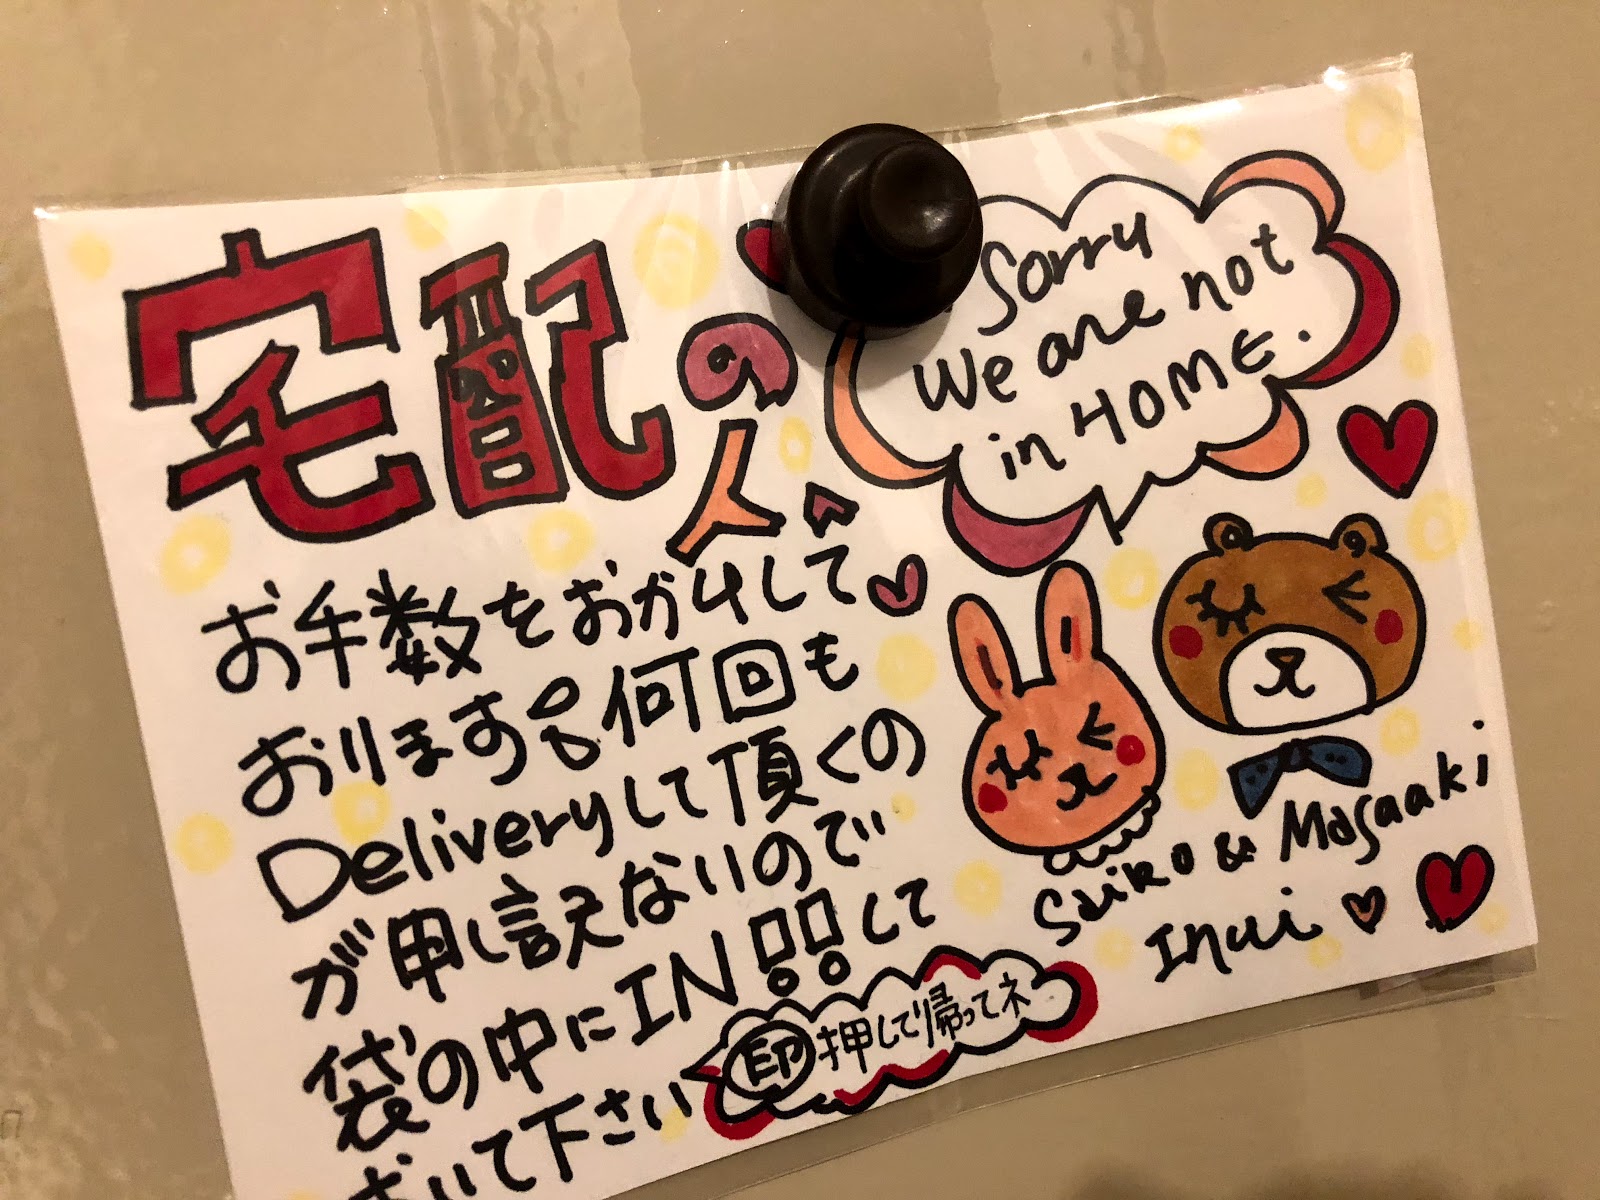 宅配の
人へ
お手数をおかけして
おります!!何回も
Deliveryして頂くの
が申し訳ないので
袋の中にIN!!して
おいて下さい
印押して帰ってネ
Sorry
We are not
in HOME.
Saiko & Masaaki
Inui